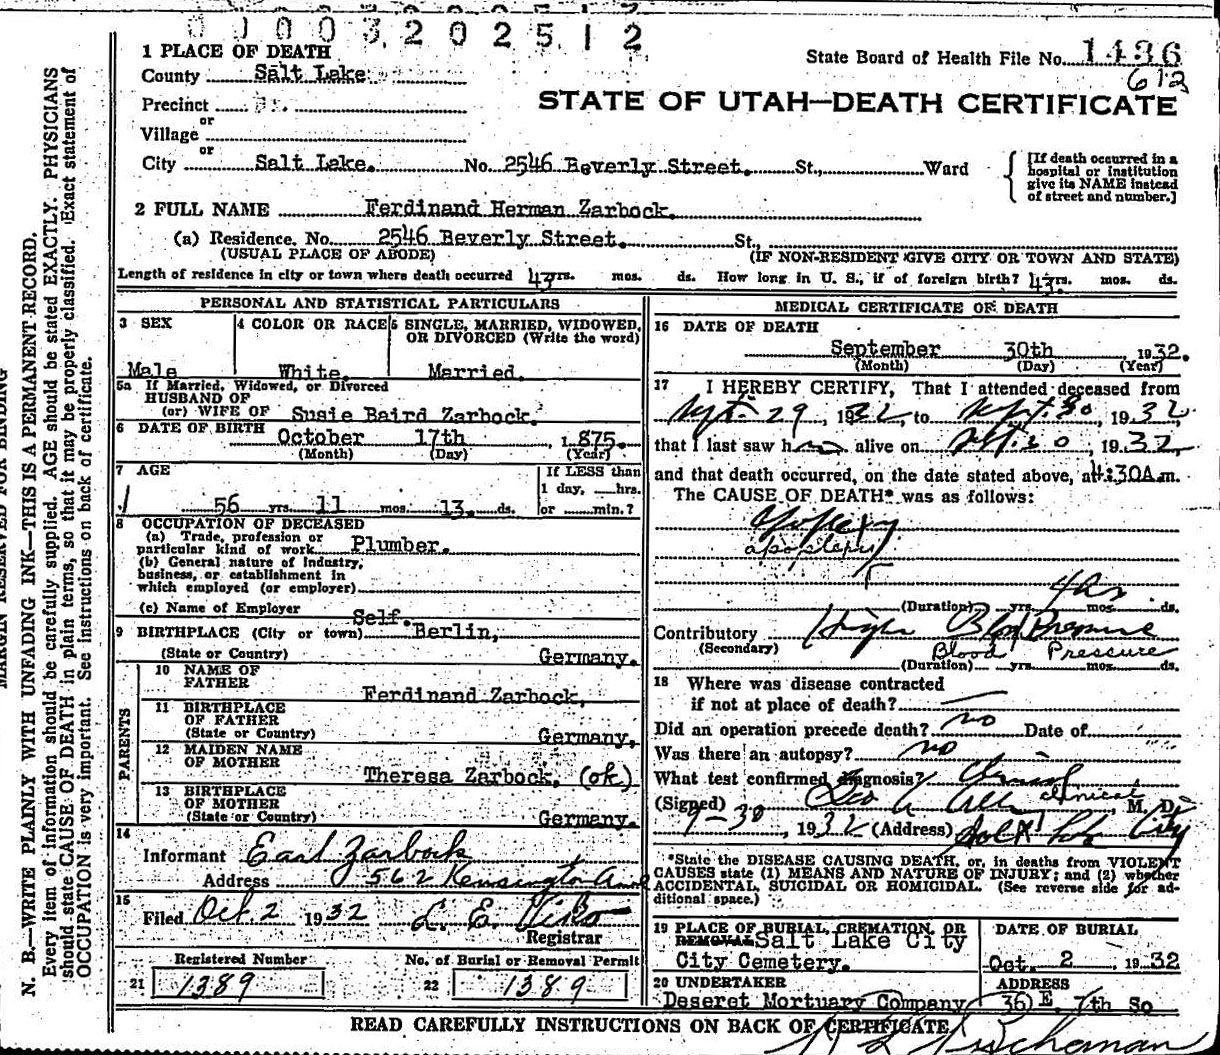 0 1 0 0 3 2 0 2 5 1 2
1 PLACE OF DEATH
State Board of Health File No. 1436
612
County Salt Lake
Precinct
or
STATE OF UTAH—DEATH CERTIFICATE
Village
or
City Salt Lake. No. 2546 Beverly Street. St., Ward
[If death occurred in a hospital or institution give its NAME instead of street and number.]
2 FULL NAME Ferdinand Herman Zarbock.
(a) Residence. No. 2546 Beverly Street. St.,
(USUAL PLACE OF ABODE) (IF NON-RESIDENT GIVE CITY OR TOWN AND STATE)
Length of residence in city or town where death occurred 43 yrs. mos. ds. How long in U. S., if of foreign birth? 43 yrs. mos. ds.
PERSONAL AND STATISTICAL PARTICULARS
3 SEX
Male
4 COLOR OR RACE
White.
5 SINGLE, MARRIED, WIDOWED,
OR DIVORCED (Write the word)
Married.
5a If Married, Widowed, or Divorced
HUSBAND OF
(or) WIFE OF Susie Baird Zarbock.
6 DATE OF BIRTH October 17th , 1875.
(Month) (Day) (Year)
7 AGE
56 yrs. 11 mos. 13. ds.
If LESS than
1 day, hrs.
or min.?
8 OCCUPATION OF DECEASED
(a) Trade, profession or
particular kind of work Plumber.
(b) General nature of industry,
business, or establishment in
which employed (or employer)
(c) Name of Employer Self.
9 BIRTHPLACE (City or town) Berlin,
(State or Country) Germany.
PARENTS
10 NAME OF
FATHER Ferdinand Zarbock.
11 BIRTHPLACE
OF FATHER
(State or Country) Germany.
12 MAIDEN NAME
OF MOTHER Theresa Zarbock. (ok)
13 BIRTHPLACE
OF MOTHER
(State or Country) Germany.
14
Informant Earl Zarbock
Address 562 Kensington Ave
15
Filed Oct 2 1932 L. E.
Registrar
Registered Number
21 1389
No. of Burial or Removal Permit
22 1389
MEDICAL CERTIFICATE OF DEATH
16 DATE OF DEATH
September 30th , 1932.
(Month) (Day) (Year)
17 I HEREBY CERTIFY, That I attended deceased from
Sept. 29, 1932, to Sept. 30, 1932,
that I last saw h alive on Sept. 30, 1932,
and that death occurred, on the date stated above, at 4:30A.m.
The CAUSE OF DEATH* was as follows:
apoplexy
(Duration) yrs. mos. ds.
4 hrs
Contributory High Blood Pressure
(Secondary) Blood Pressure
(Duration) yrs. mos. ds.
18 Where was disease contracted
if not at place of death?
Did an operation precede death? no Date of
Was there an autopsy? no
What test confirmed diagnosis? Clinical
clinical
(Signed) M. D.
9-30, 1932 (Address) Salt Lake City
*State the DISEASE CAUSING DEATH, or, in deaths from VIOLENT
CAUSES state (1) MEANS AND NATURE OF INJURY; and (2) whether
ACCIDENTAL, SUICIDAL OR HOMICIDAL. (See reverse side for ad-
ditional space.)
19 PLACE OF BURIAL, CREMATION, OR
REMOVAL Salt Lake City
City Cemetery.
DATE OF BURIAL
Oct. 2, 1932
20 UNDERTAKER
Deseret Mortuary Company
ADDRESS
36 E. 7th So
READ CAREFULLY INSTRUCTIONS ON BACK OF CERTIFICATE
Buschman
MARGIN RESERVED FOR BINDING
N. B.—WRITE PLAINLY WITH UNFADING INK—THIS IS A PERMANENT RECORD.
Every item of information should be carefully supplied. AGE should be stated EXACTLY. PHYSICIANS
should state CAUSE OF DEATH in plain terms, so that it may be properly classified. Exact statement of
OCCUPATION is very important. See instructions on back of certificate.